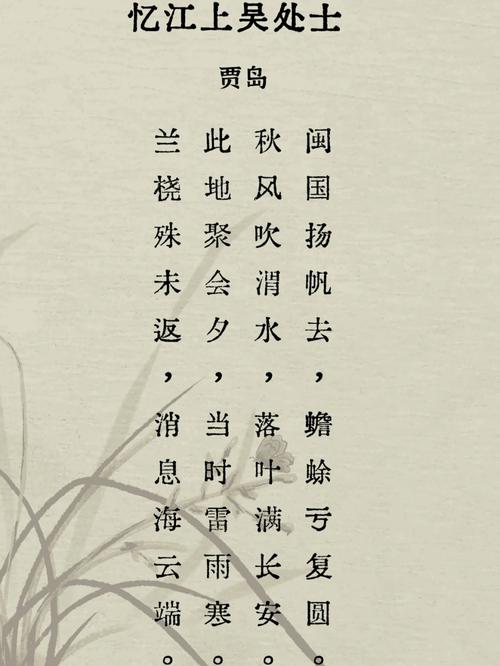 忆江上吴处士
贾岛
闽国扬帆去，蟾蜍亏复圆。
秋风吹渭水，落叶满长安。
此地聚会夕，当时雷雨寒。
兰桡殊未返，消息海云端。